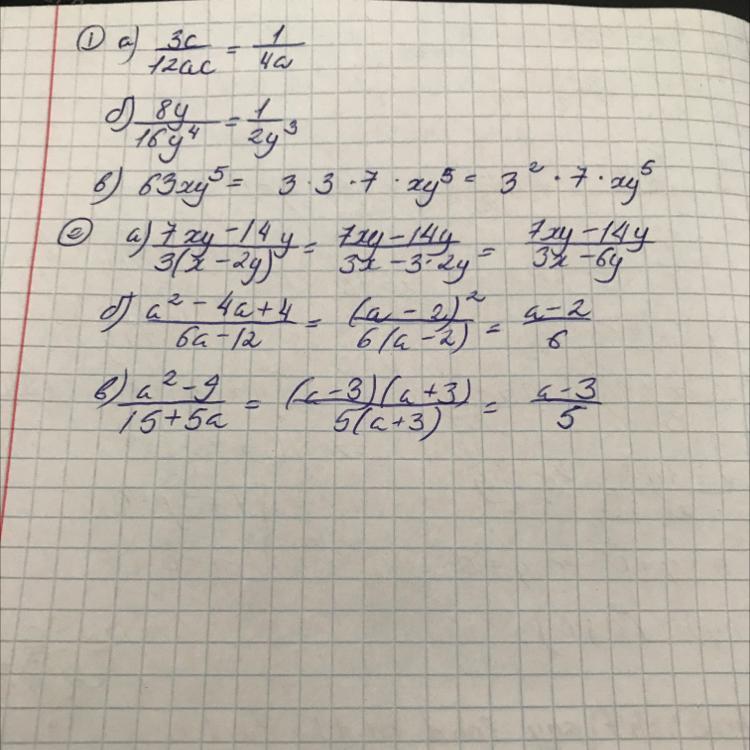 ① а) 3c/12ac = 1/4a
б) 8y/16y⁴ = 1/2y³
в) 63xy⁵ = 3 · 3 · 7 · xy⁵ = 3² · 7 · xy⁵
② а) 7xy - 14y/3(x - 2y) = 7xy - 14y/3x - 3·2y = 7xy - 14y/3x - 6y
б) a² - 4a + 4/6a - 12 = (a - 2)²/6(a - 2) = a - 2/6
в) a² - 9/15 + 5a = (a - 3)(a + 3)/5(a + 3) = a - 3/5